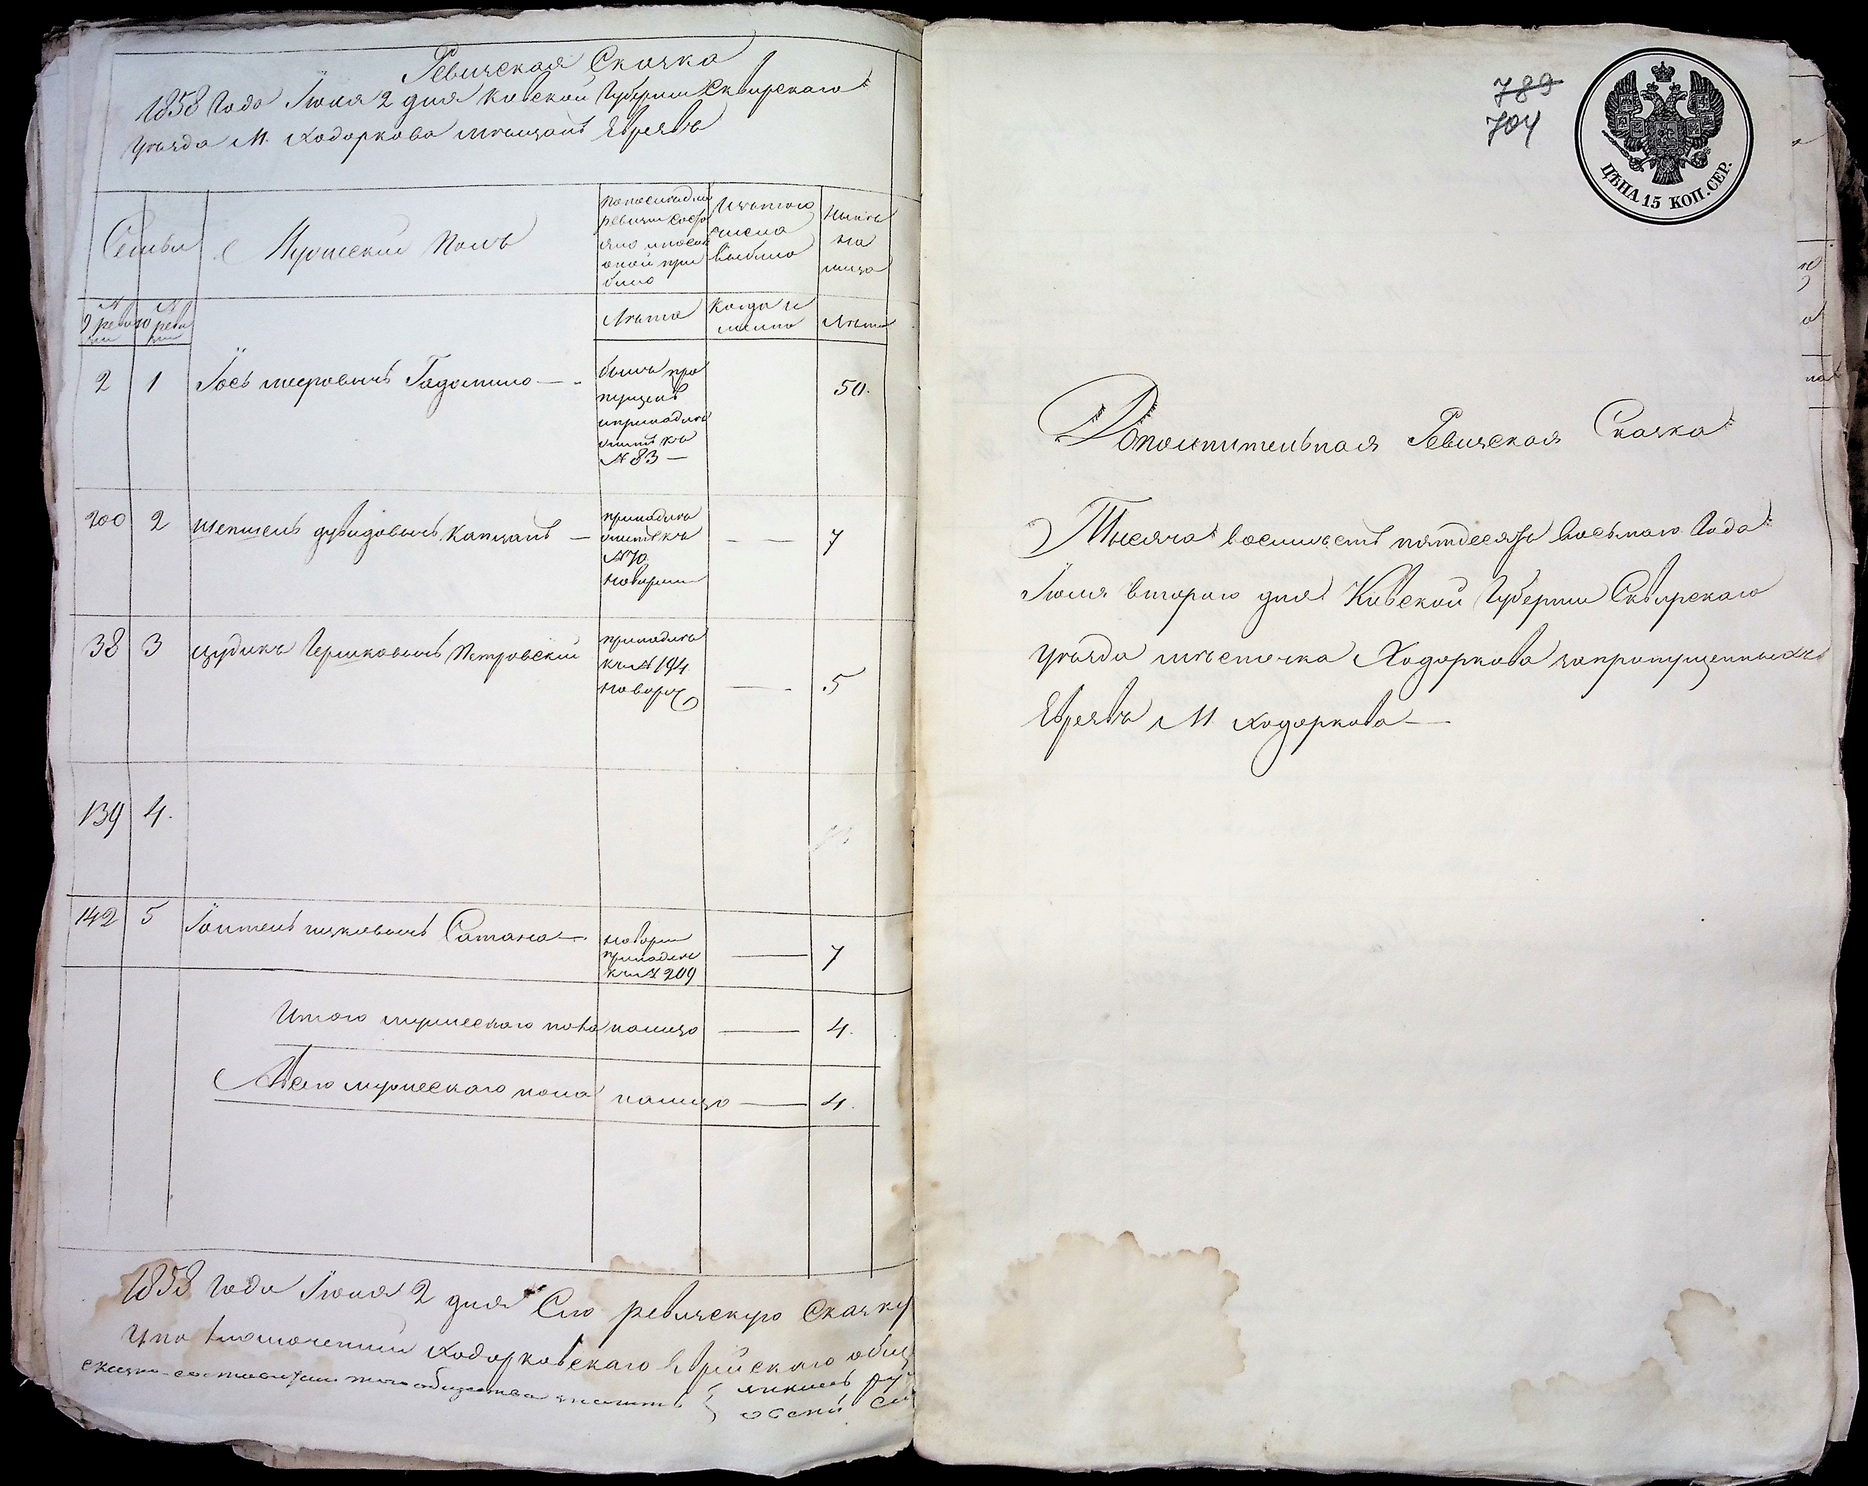 Ревизская Сказка
1858 Года Июня 2 дня Киевской Губернии Сквирскаго
уѣзда М. Ходоркова мѣщанъ Евреевъ
Семьи
Мужеский Полъ
по последней
ревизии состо
яло и после
оной при
было
Изъ того
числа
выбыло
Нынѣ
на
лицо
№
9 реви
зии
№
10 реви
зии
Лѣта
Когда и
Лѣта
2 1 Іось Мееровичъ — 50.
былъ про
пущенъ
и принадле
житъ къ
№ 83 —
200 2 Шепшель Дувидовичъ Капланъ — — — 7
принадле
житъ къ
№ 70
новорож
38 3 Цудикъ Гершковичъ Петровский — 5
принадле
къ № 194
новорож
139 4.
142 5 Ицковичъ Сатана — — 7
новорож
принадле
къ № 209
Итого мужескаго пола налицо — 4.
Всего мужескаго пола налицо — 4.
1858 года Июня 2 дня Сию ревизскую Сказку
Ходорковскаго Еврейскаго общ
789
704
ЦѢНА 15 КОП. СЕР.
Дополнительная Ревизская Сказка
Тысяча восемьсотъ пятдесятъ восьмаго Года
Июня втораго дня Киевской Губернии Сквирскаго
уѣзда мѣстечка Ходоркова запропущенныхъ
Евреевъ М Ходоркова —